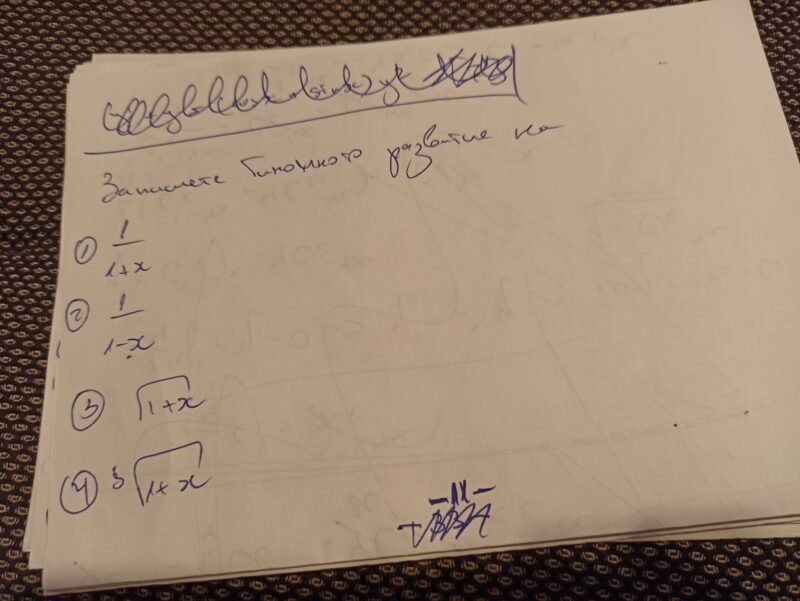 Запишете биномното развитие на
① 1/(1+x)
② 1/(1-x)
③ √(1+x)
④ ³√(1+x)
-11-